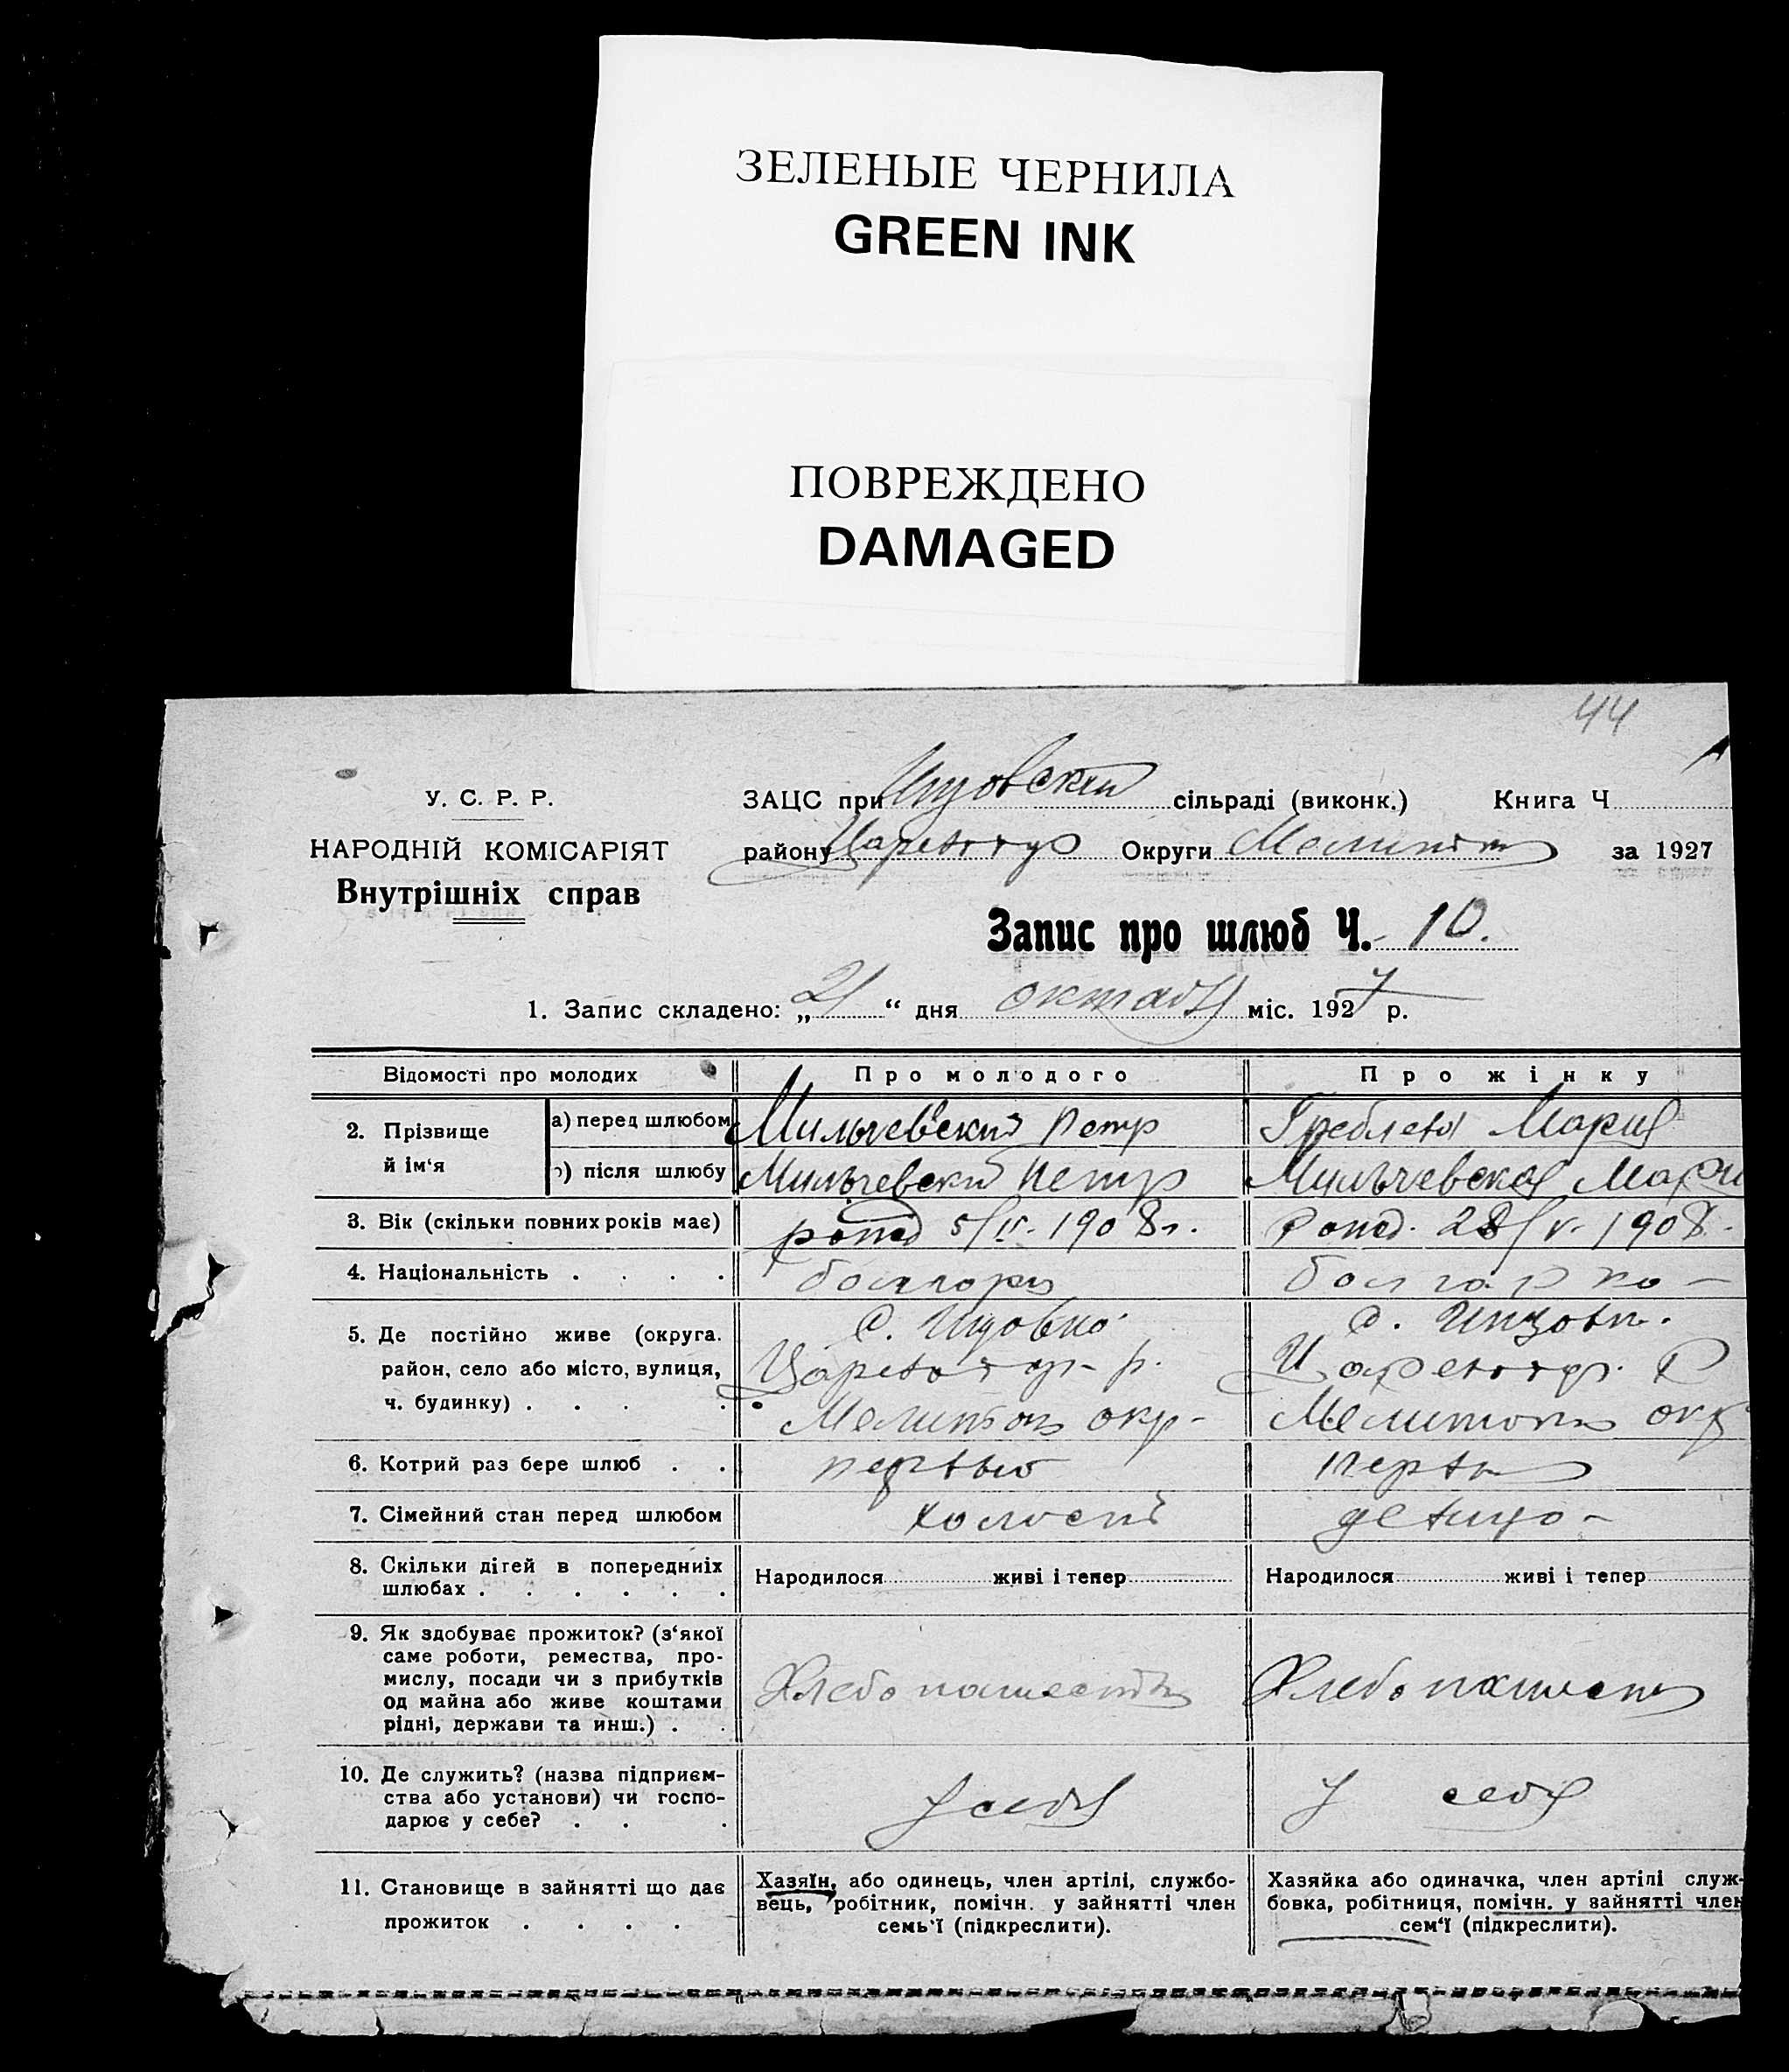 ЗЕЛЕНЫЕ ЧЕРНИЛА
GREEN INK
ПОВРЕЖДЕНО
DAMAGED
44
У. С. Р. Р.
НАРОДНІЙ КОМІСАРІЯТ
Внутрішніх справ
ЗАЦС при сільраді (виконк.) Книга Ч
району Округи за 1927
Запис про шлюб Ч. 10.
1. Запис складено: „21“ дня октября міс. 1927 р.
Відомості про молодих Про молодого Про жінку
2. Прізвище й ім‘я
а) перед шлюбом Мильчевский Петр Мария
б) після шлюбу Мильчевский Петр Мильчевская Мария
3. Вік (скільки повних років має) 5/IV-1908г. 28/V-1908-
4. Національність . . . . болгарка -
5. Де постійно живе (округа, с. с.
район, село або місто, вулиця, р. Р
ч. будинку) . . . . окр- окр
6. Котрий раз бере шлюб . . первый
7. Сімейний стан перед шлюбом холостой девица -
8. Скільки дітей в попередніх Народилося живі і тепер Народилося живі і тепер
шлюбах . . . . . .
9. Як здобуває прожиток? (з‘якої
саме роботи, ремества, про-
мислу, посади чи з прибутків
од майна або живе коштами
рідні, держави та инш.) . .
10. Де служить? (назва підприєм-
ства або установи) чи госпо-
дарює у себе? . . . У себя У себя
11. Становище в зайнятті що дає
прожиток . . . .
Хазяїн, або одинець, член артілі, службо-
вець, робітник, помічн. у зайнятті член
семь‘ї (підкреслити).
Хазяйка або одиначка, член артілі служ-
бовка, робітниця, помічн. у зайнятті член
сем‘ї (підкреслити).